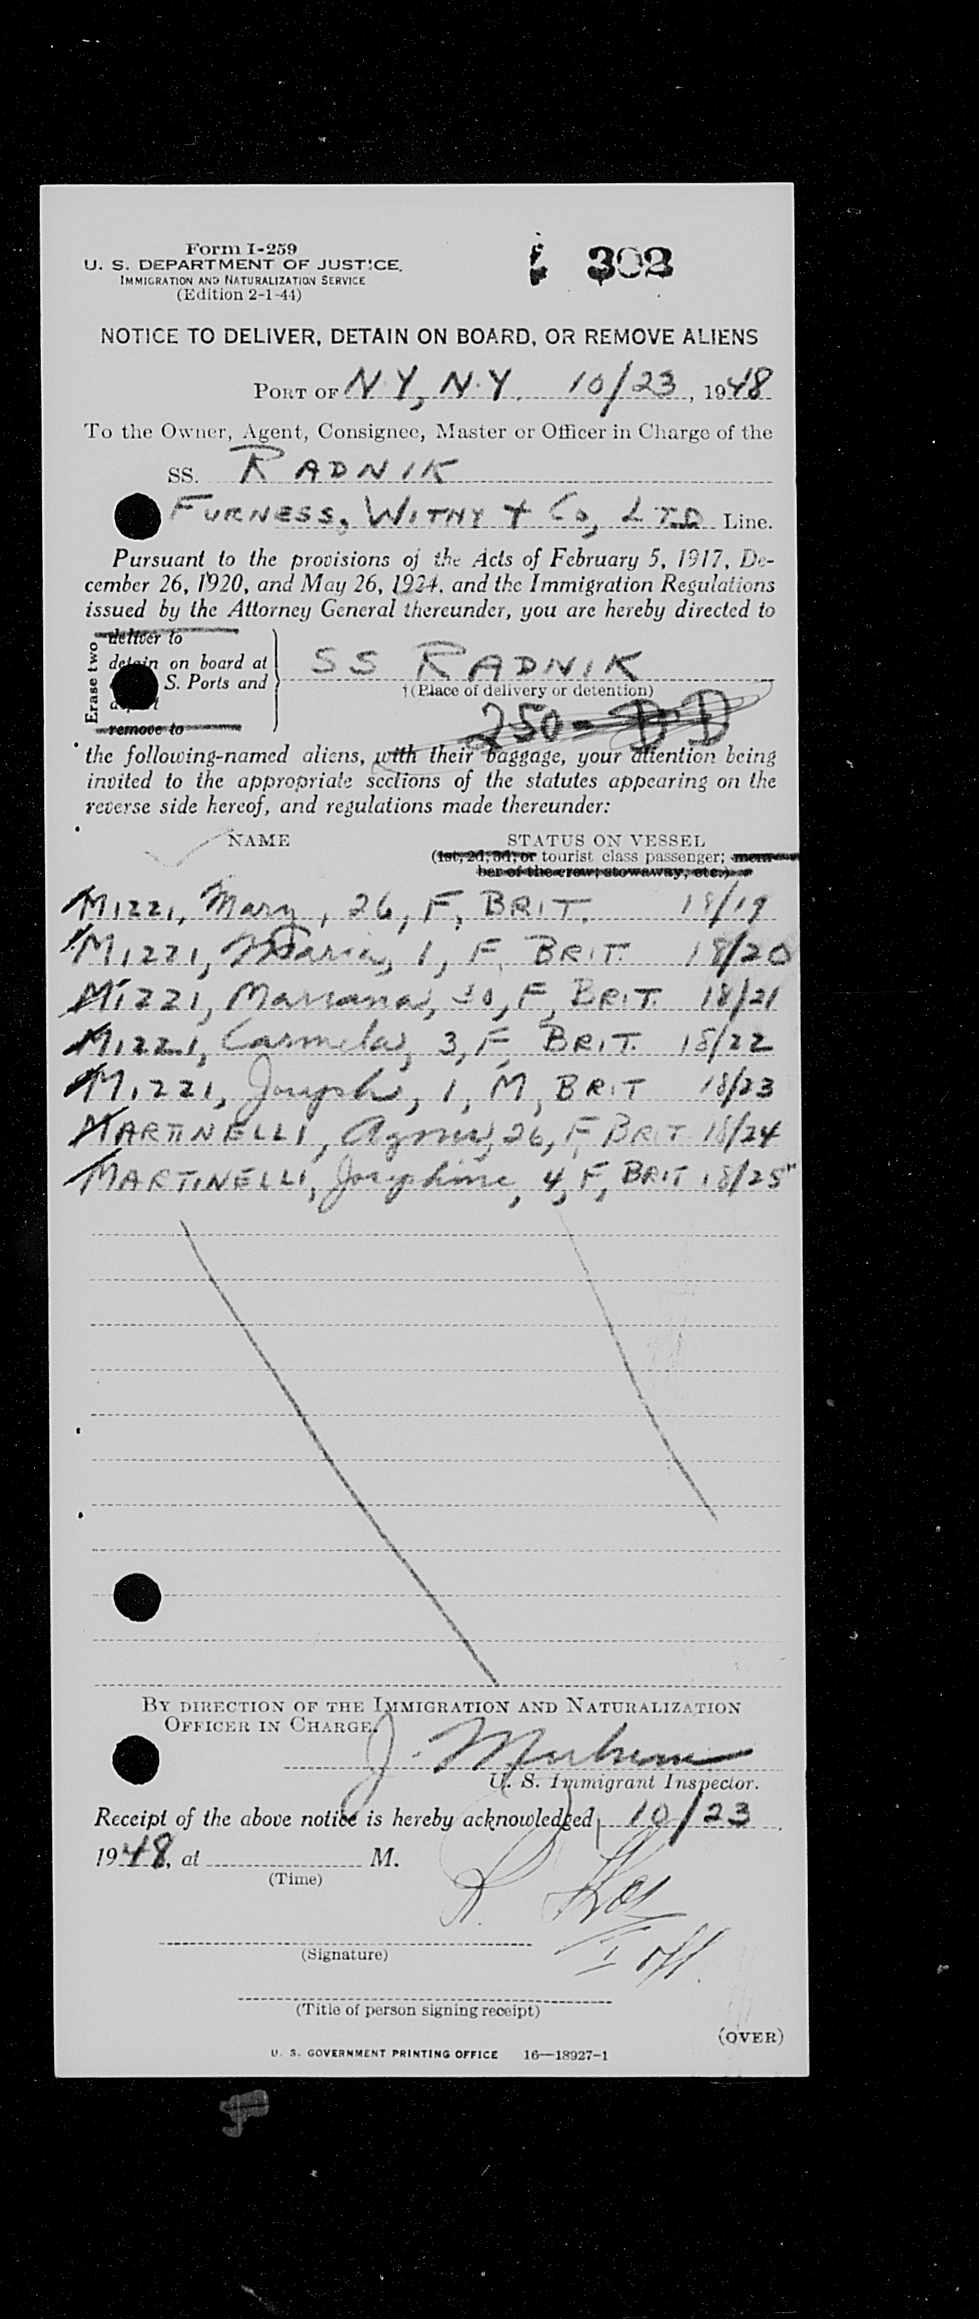 Form I-259
U. S. DEPARTMENT OF JUSTICE.
IMMIGRATION AND NATURALIZATION SERVICE
(Edition 2-1-44)
302
NOTICE TO DELIVER, DETAIN ON BOARD, OR REMOVE ALIENS
PORT OF N.Y., N.Y. 10/23, 1948
To the Owner, Agent, Consignee, Master or Officer in Charge of the
SS. RADNIK
FURNESS, WITHY + Co, LTD Line.
Pursuant to the provisions of the Acts of February 5, 1917, De-
cember 26, 1920, and May 26, 1924, and the Immigration Regulations
issued by the Attorney General thereunder, you are hereby directed to
Erase two
deliver to
detain on board at
S. Ports and
remove to
SS RADNIK
†(Place of delivery or detention)
250 = DD
the following-named aliens, with their baggage, your attention being
invited to the appropriate sections of the statutes appearing on the
reverse side hereof, and regulations made thereunder:
NAME STATUS ON VESSEL
(1st, 2d, 3d, or tourist class passenger; mem-
ber of the crew; stowaway, etc.)
MIZZI, Mary, 26, F, BRIT. 18/19
MIZZI, Maria, 1, F, BRIT. 18/20
MIZZI, Marianna, F, BRIT. 18/21
MIZZI, Carmela, 3, F, BRIT. 18/22
MIZZI, Joseph, 1, M, BRIT 18/23
MARTINELLI, Agnes, 26, F, BRIT 18/24
MARTINELLI, Josephine, 4, F, BRIT 18/25"
BY DIRECTION OF THE IMMIGRATION AND NATURALIZATION
OFFICER IN CHARGE.
J.
U. S. Immigrant Inspector.
Receipt of the above notice is hereby acknowledged, 10/23
1948, at M.
(Time)
(Signature)
I off.
(Title of person signing receipt)
(OVER)
U. S. GOVERNMENT PRINTING OFFICE 16—18927-1